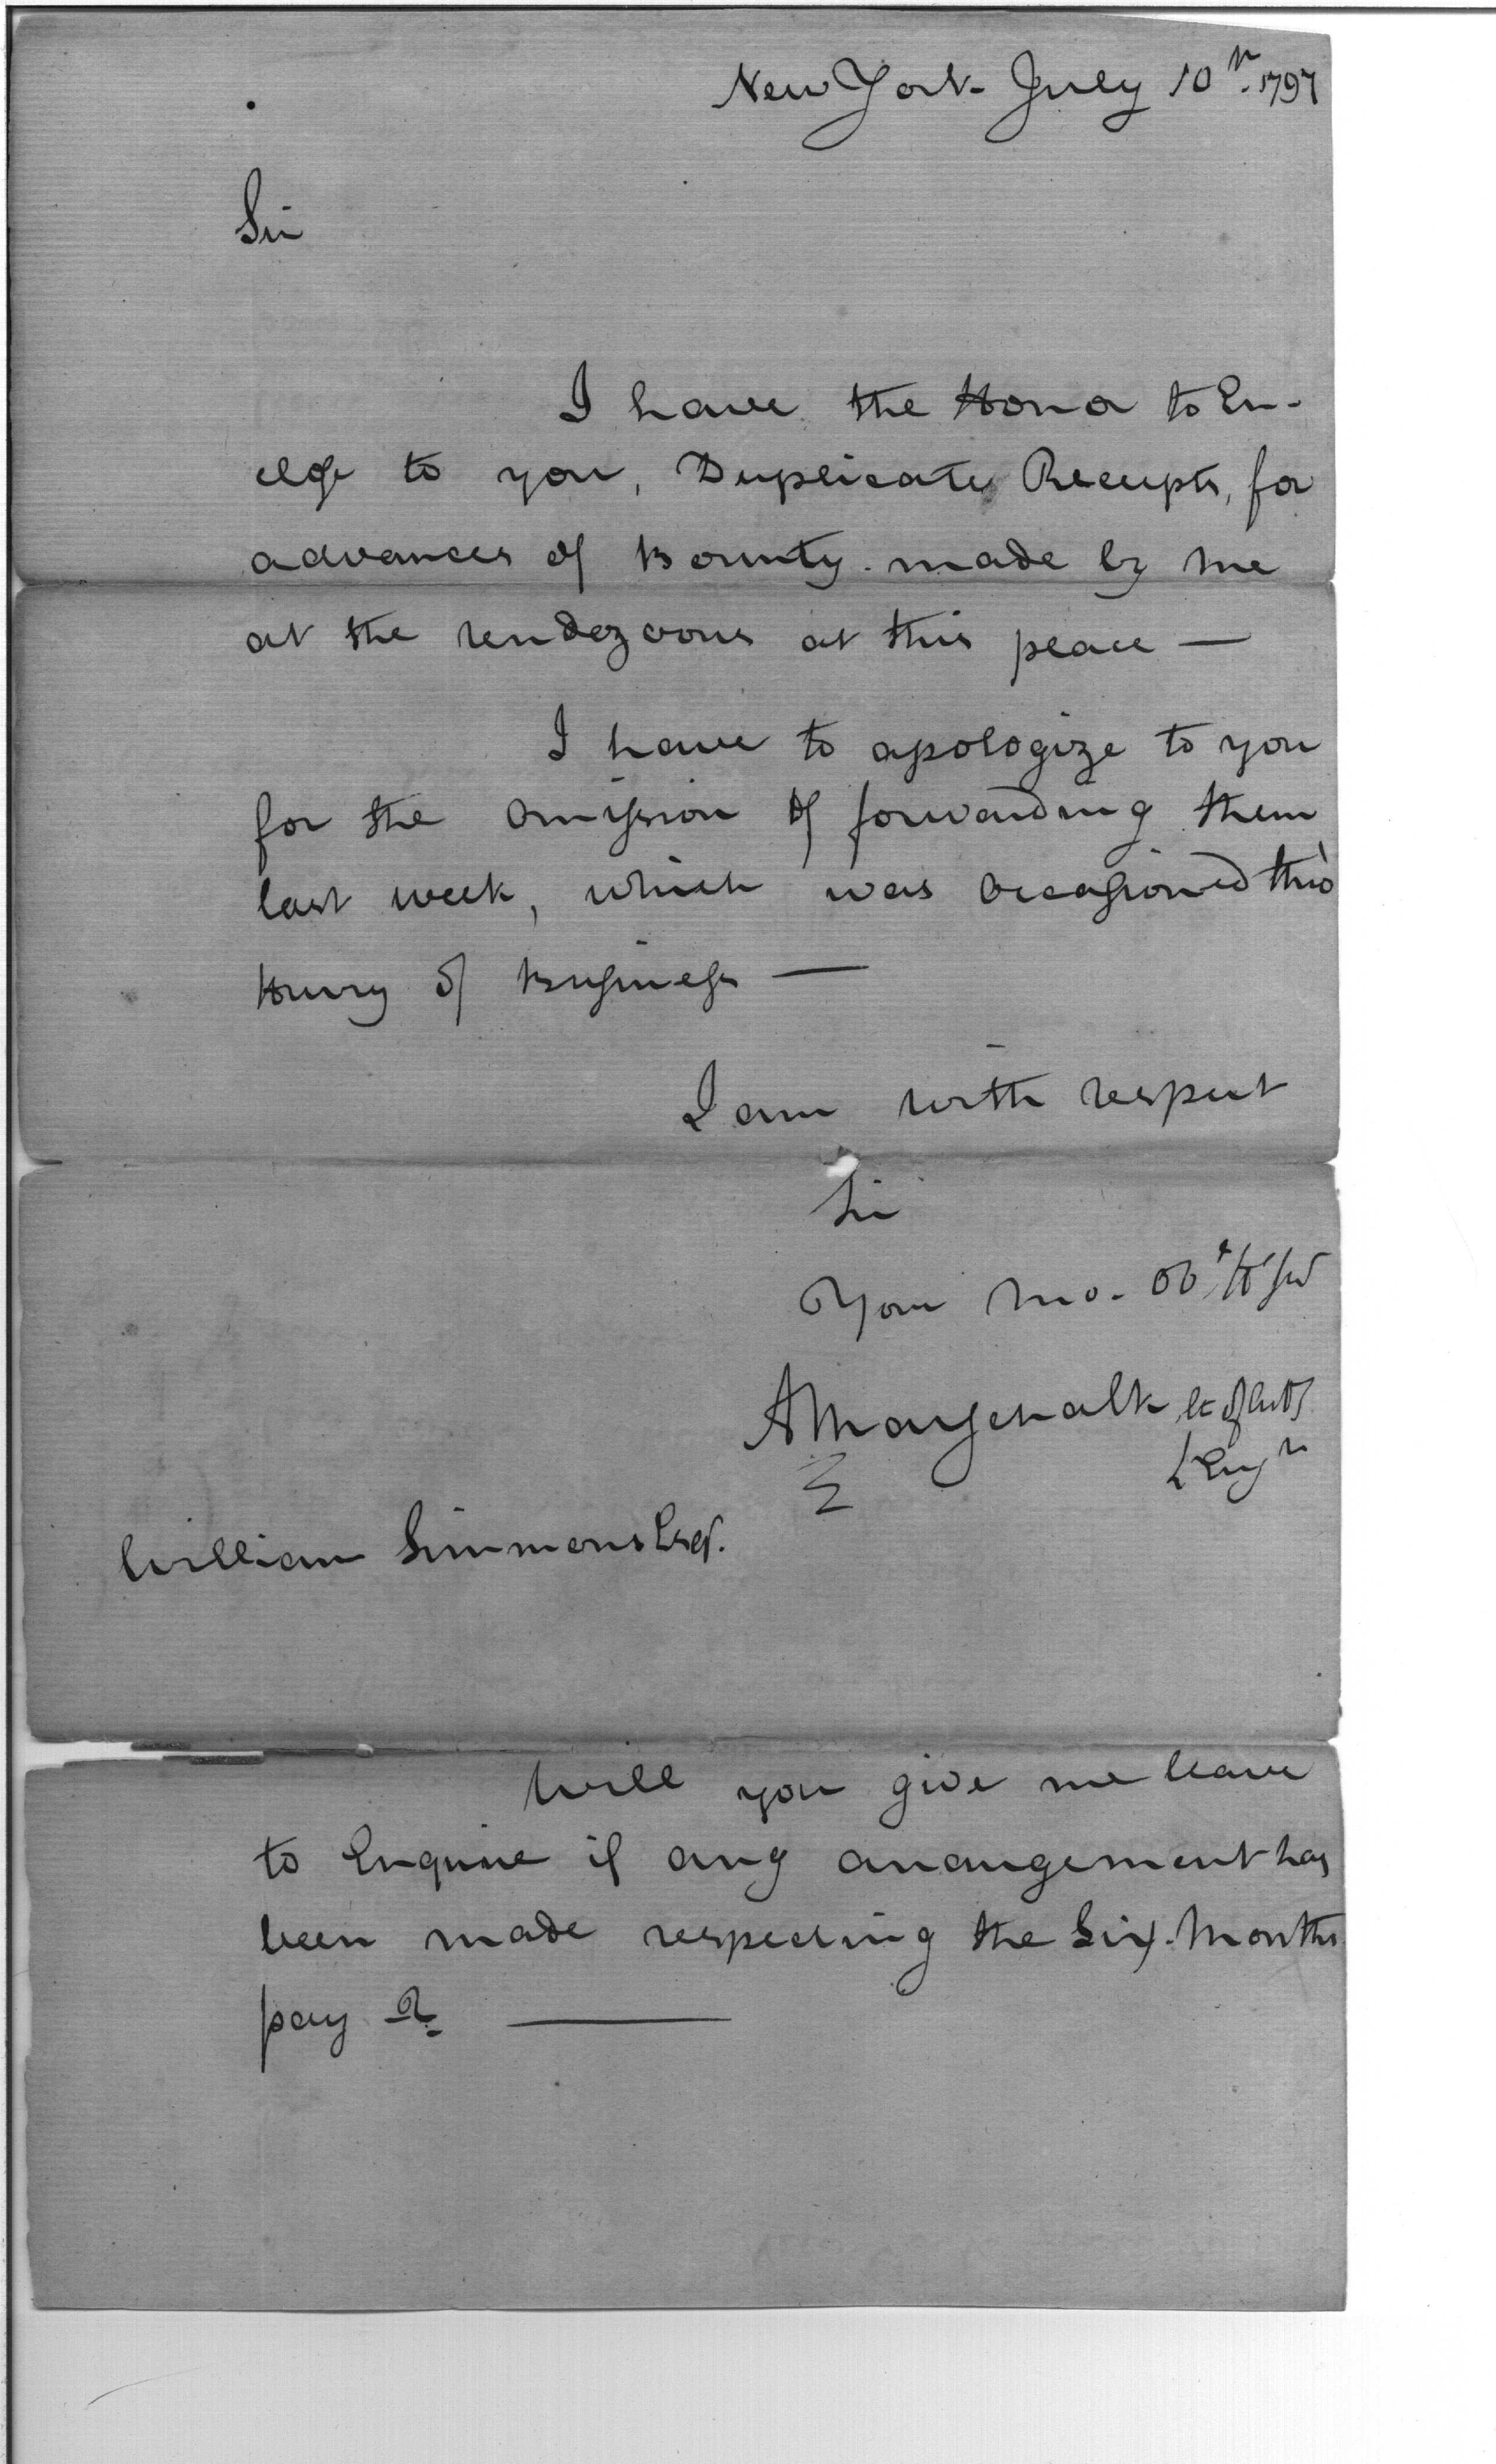 New York July 10th. 1797
Sir
I have the Honor to En-
close to you, Duplicate Receipts, for
advances of Bounty made by me
at the rendezvous at this place —
I have to apologize to you
for the Omission of forwarding them
last week, which was occasioned thro'
Hurry of Business —
I am with respect
Sir
Your mo. Obt Ht Svt
AMarschalk Lt of Arts
& Engrs
William Simmons Esqr.
Will you give me leave
to Enquire if any arrangement has
been made respecting the Six Months
pay ? —